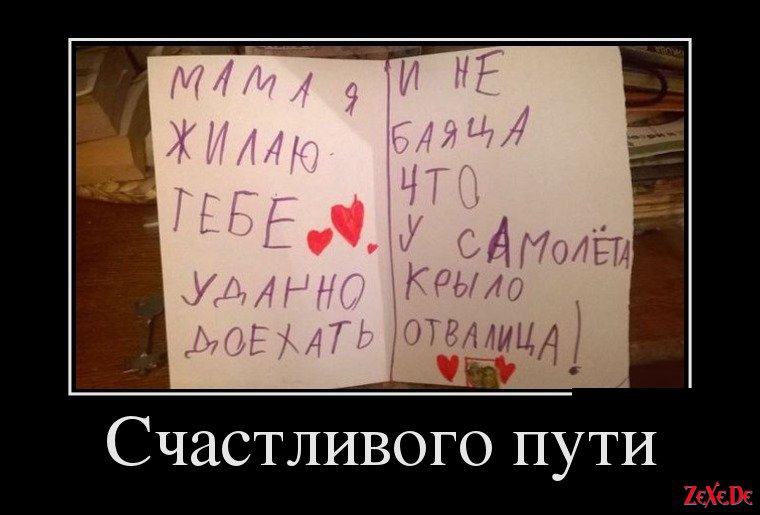 МАМА Я
ЖИЛАЮ
ТЕБЕ
УДАЧНО
ДОЕХАТЬ
И НЕ
БАЯЦА
ЧТО
У САМОЛЁТА
КРЫЛО
ОТВАЛИЦА!
Счастливого пути
ZeXe.De